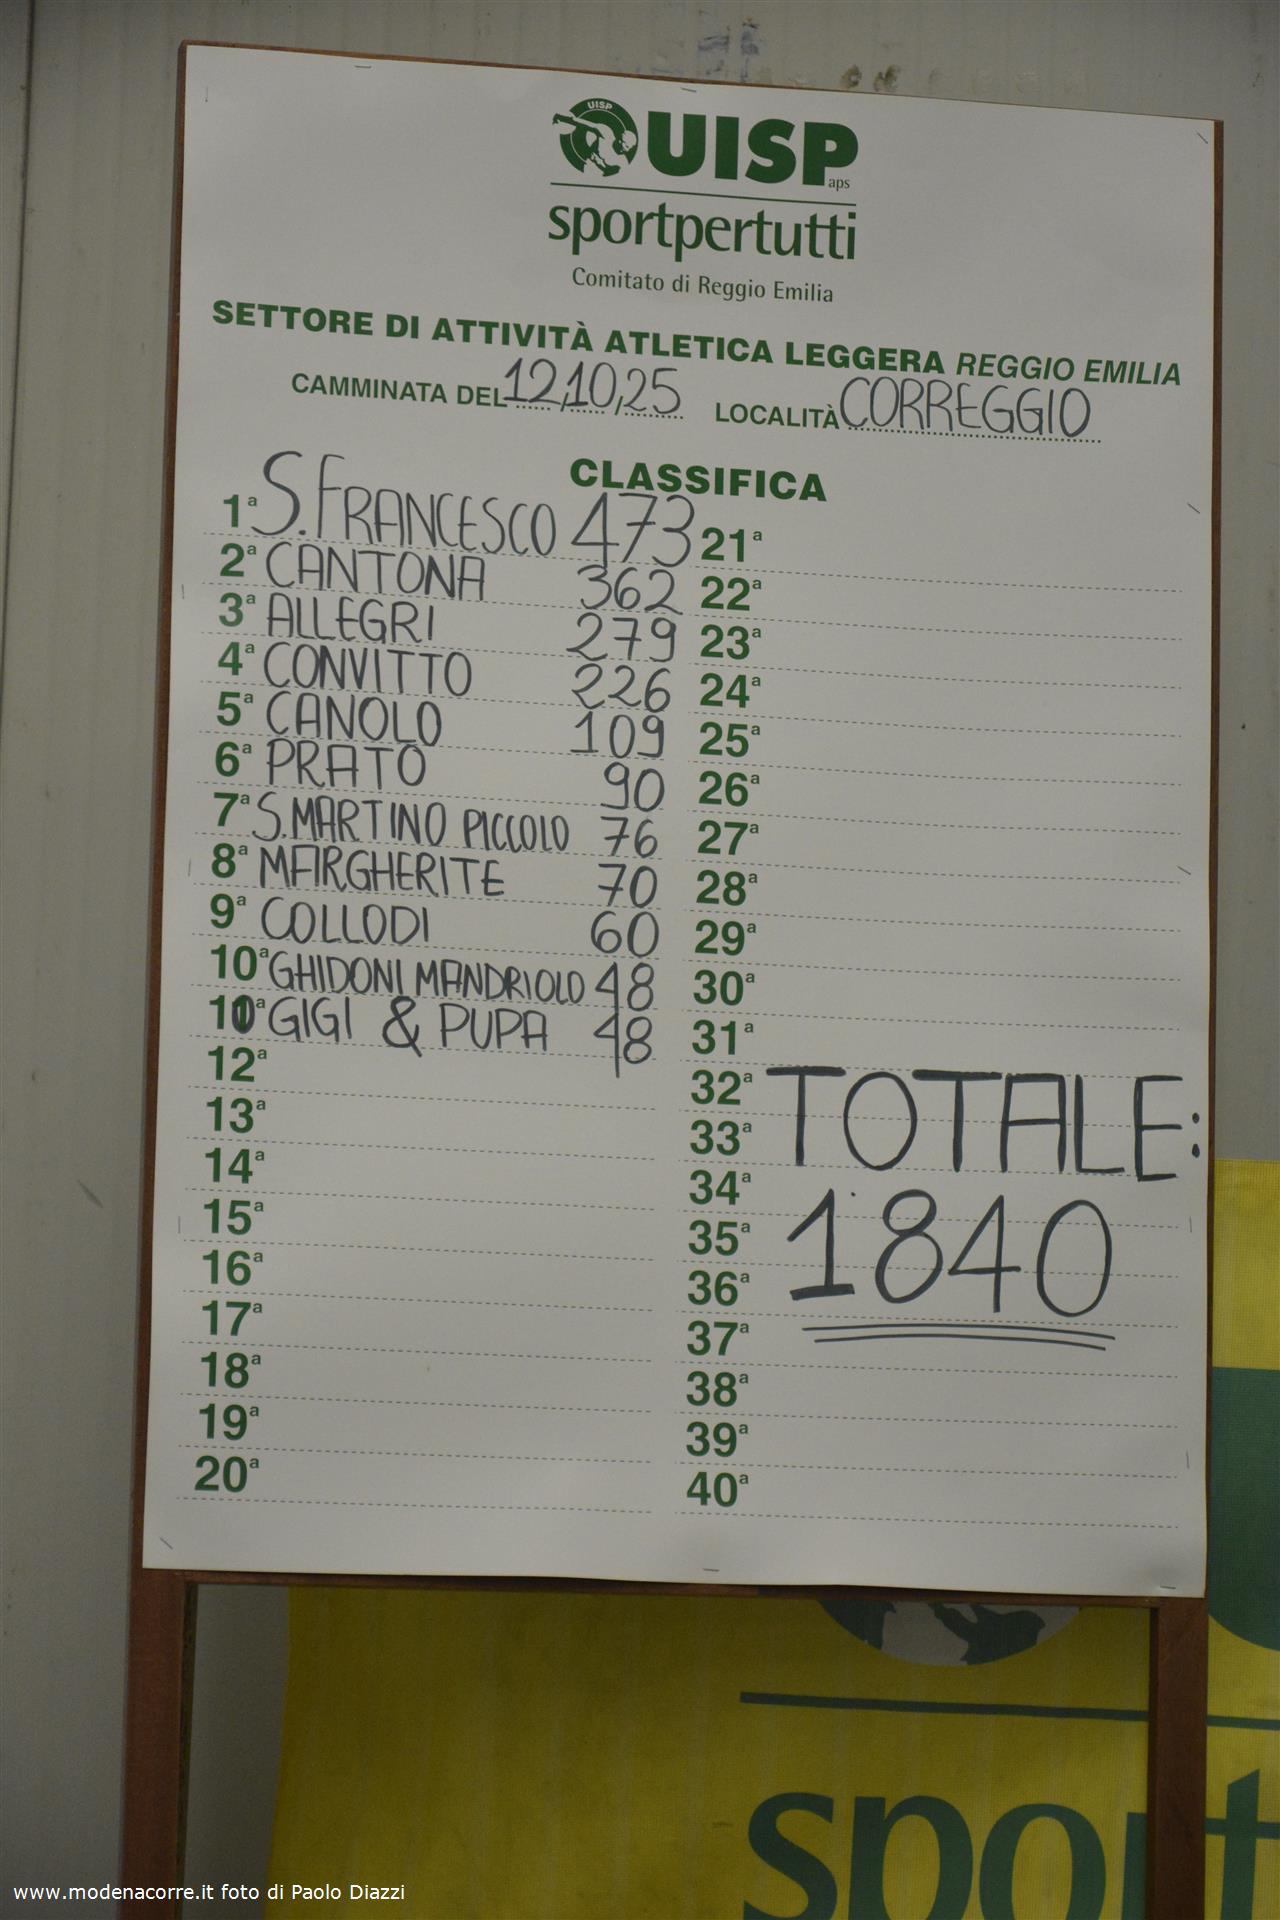 UISP
UISP aps
sportpertutti
Comitato di Reggio Emilia
SETTORE DI ATTIVITÀ ATLETICA LEGGERA REGGIO EMILIA
CAMMINATA DEL 12,10,25 LOCALITÀ CORREGGIO
CLASSIFICA
1ª S. FRANCESCO 473
2ª CANTONA 362
3ª ALLEGRI 279
4ª CONVITTO 226
5ª CANOLO 109
6ª PRATO 90
7ª S. MARTINO PICCOLO 76
8ª MARGHERITE 70
9ª COLLODI 60
10ª GHIDONI MANDRIOLO 48
10ª GIGI & PUPA 48
12ª
13ª
14ª
15ª
16ª
17ª
18ª
19ª
20ª
21ª
22ª
23ª
24ª
25ª
26ª
27ª
28ª
29ª
30ª
31ª
32ª
33ª
34ª
35ª
36ª
37ª
38ª
39ª
40ª
TOTALE:
1840
sport
www.modenacorre.it foto di Paolo Diazzi